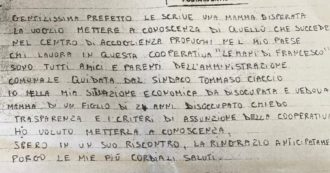 GENTILISSIMO PREFETTO LE SCRIVE UNA MAMMA DISPERATA
LA VOGLIO METTERE A CONOSCENZA DI QUELLO CHE SUCCEDE
NEL CENTRO DI ACCOGLIENZA PROFUGHI NEL MIO PAESE
CHI LAVORA IN QUESTA COOPERATIVA "LE MANI DI FRANCESCO"
SONO TUTTI AMICI E PARENTI DELL'AMMINISTRAZIONE
COMUNALE GUIDATA DAL SINDACO TOMMASO CIACCIO
IO NELLA MIA SITUAZIONE ECONOMICA DA DISOCCUPATA E VEDOVA
MAMMA DI UN FIGLIO DI ANNI DISOCCUPATO CHIEDO
TRASPARENZA E I CRITERI DI ASSUNZIONE DELLA COOPERATIVA
HO VOLUTO METTERLA A CONOSCENZA,
SPERO IN UN SUO RISCONTRO, LA RINGRAZIO ANTICIPATAMENTE
PORGO LE MIE PIÙ CORDIALI SALUTI.